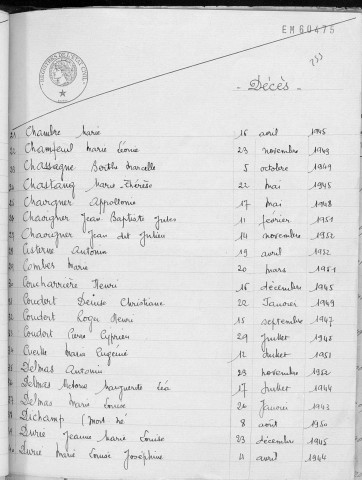 EM 60475
233
- Décès -
21 Chambre Marie 16 avril 1945
22 Champeul Marie Léonie 23 novembre 1949
23 Chassagne Berthe Marcelle 5 octobre 1949
24 Chastang Marie-Thérèse 22 mai 1945
25 Chavigner Appollonie 17 mai 1948
26 Chavigner Jean Baptiste Jules 11 février 1951
27 Chavigner Jean dit Julien 14 novembre 1952
28 Cisterne Antonin 19 avril 1952
29 Combes Marie 20 mars 1951
30 Concharrière Henri 16 décembre 1945
31 Coudort Denise Christiane 22 Janvier 1949
32 Coudort Roger Henri 15 septembre 1947
33 Coudort Pierre Cyprien 29 Juillet 1948
34 Cueille Marie Eugénie 12 Juillet 1951
35 Delmas Antonin 23 novembre 1952
36 Delmas Victorine Marguerite Léa 17 Juillet 1944
37 Delmas Marie Louise 24 Janvier 1943
38 Duchamp (mort né 8 août 1950
39 Durie Jeanne Marie Louise 23 décembre 1945
40 Durie Marie Louise Josephine 4 avril 1944